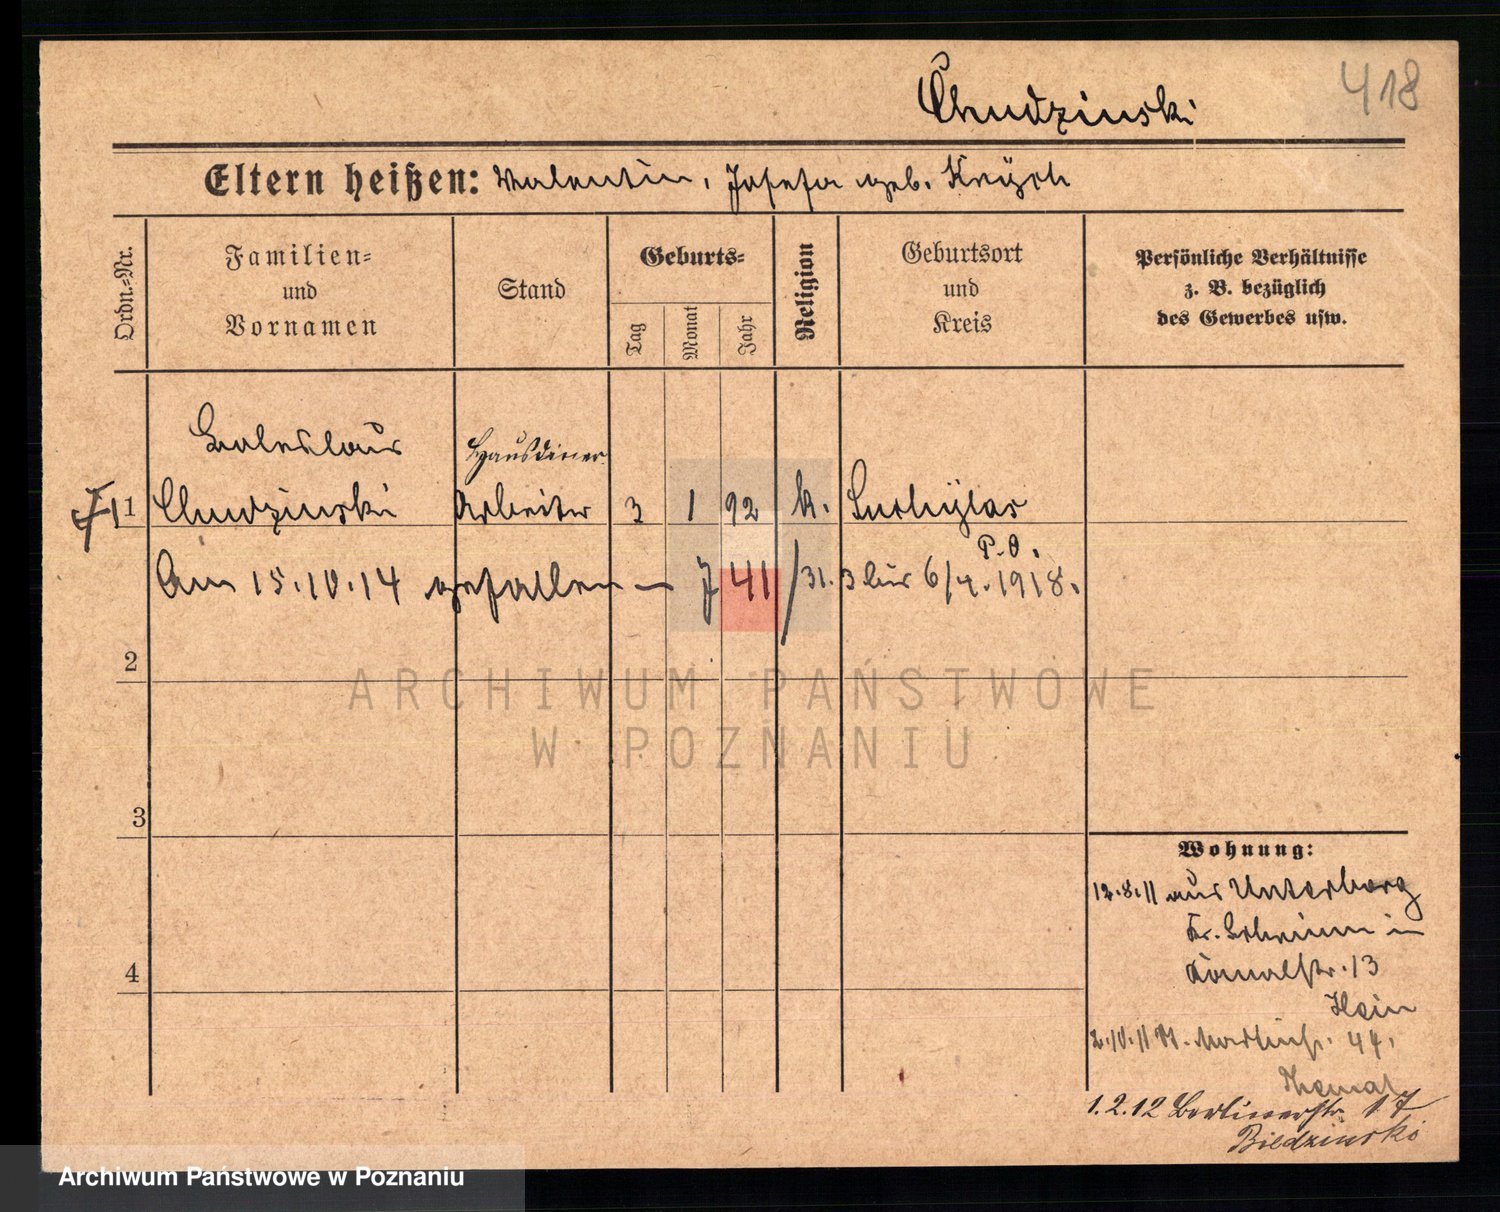 Chudzinski
418
Eltern heißen: Valentin, Josefa geb. Krzych
Ordn.-Nr.
Familien- und Vornamen
Stand
Geburts-
Tag
Monat
Jahr
Religion
Geburtsort und Kreis
Persönliche Verhältnisse z. B. bezüglich des Gewerbes usw.
Boleslaus
Hausdiener
1 Chudzinski Arbeiter 3 1 92 k.
P. O.
Am 15.10.14 gefallen — J 41/31. 3 bis 6/4. 1918.
2
3
4
ARCHIWUM PAŃSTWOWE
W POZNANIU
Wohnung:
12.8.11 aus Unterberg
Kr. Schrimm in
str. 13
Hein
2.10.11 St. Martinstr. 44.
1.2.12 Berlinerstr. 17
Biedzinski
Archiwum Państwowe w Poznaniu